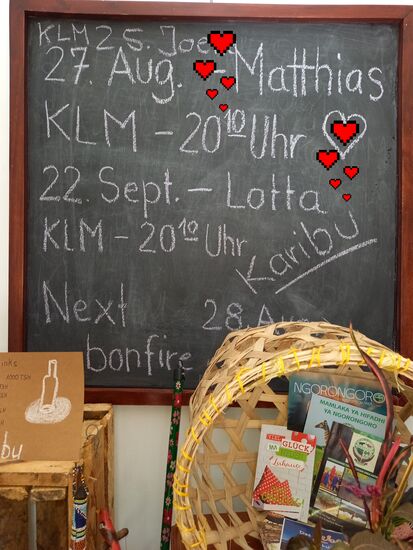 KLM 25. Joe
27. Aug. - Matthias
KLM - 20¹⁰ Uhr
22. Sept. - Lotta
KLM - 20¹⁰ Uhr
Karibu
Next 28. Aug
bonfire
inks
1000 TSH
bu
NGORONGORO
MAMLAKA YA HIFADHI
YA NGORONGORO
VIEL
GLÜCK